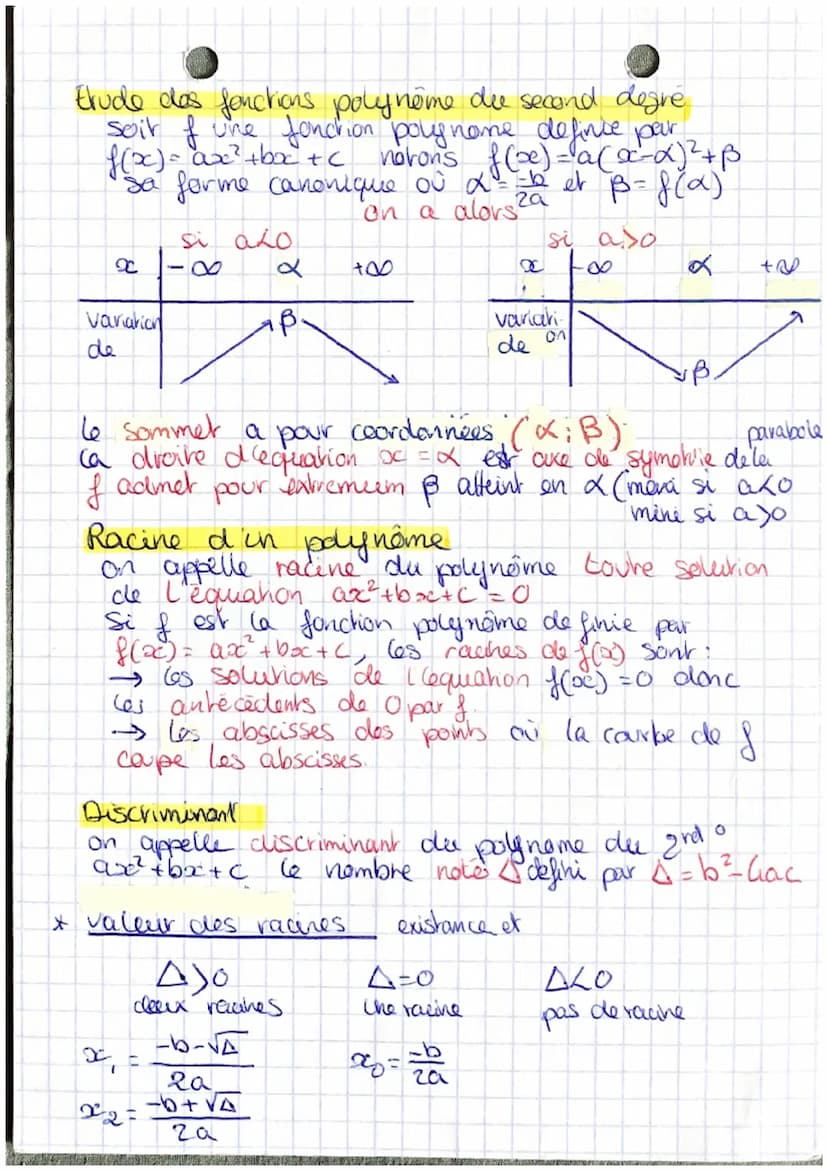 Etude des fonctions polynôme du second degré
soit f une fonction polynome definie par
f(x) = ax² + bx + c notons f(x) = a(x-α)² + β
sa forme canonique où α = -b/2a et β = f(α)
on a alors
si a<0 si a>0
x -∞ α +∞ x -∞ α +∞
variation β variati-
de de on
β
le sommet a pour coordonnées (α; β)
la droite d'équation x = α est axe de symetrie de la parabole
f admet pour extremum β atteint en α (maxi si a<0
mini si a>0
Racine d'un polynôme
on appelle racine du polynôme toute solution
de l'équation ax² + bx + c = 0
Si f est la fonction polynôme definie par
f(x) = ax² + bx + c, les racines de f(x) sont :
→ les solutions de l'equation f(x) = 0 donc
les antécédents de 0 par f.
→ les abscisses des points où la courbe de f
coupe les abscisses.
Discriminant
on appelle discriminant du polynome du 2nd °
ax² + bx + c le nombre noté Δ défini par Δ = b² - 4ac
* valeur des racines existance et
Δ>0 Δ=0 Δ<0
deux racines une racine pas de racine
x₁ = -b-√Δ/2a x₀ = -b/2a
x₂ = -b+√Δ/2a